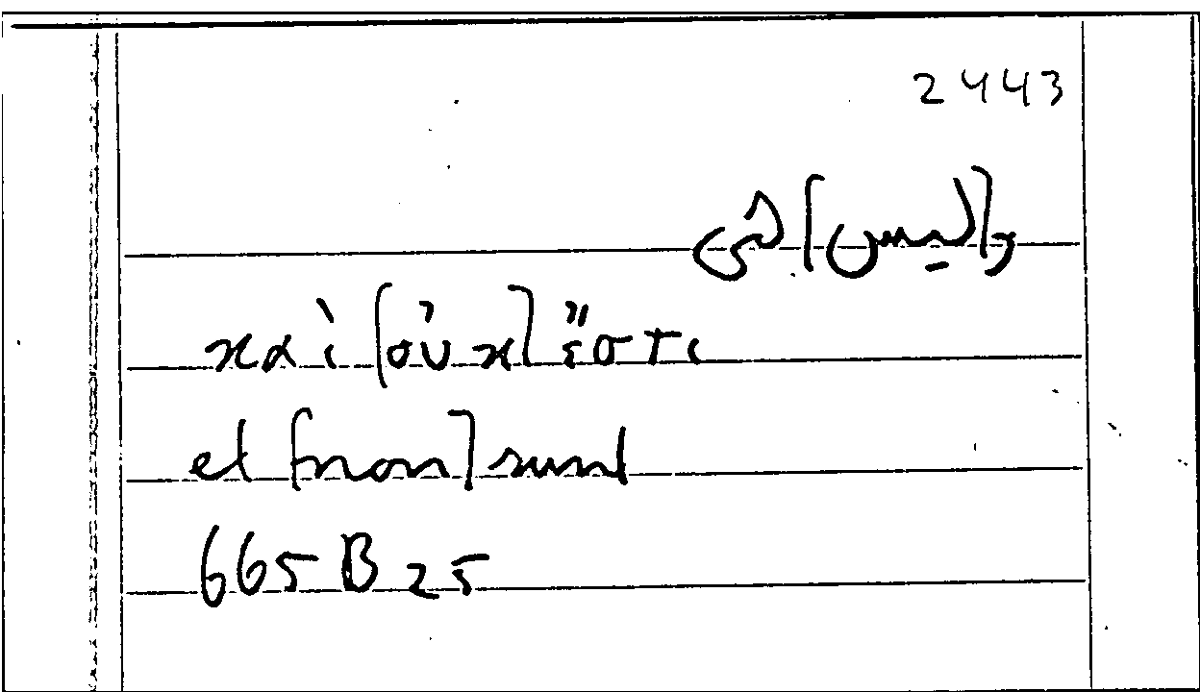 2443
و[ليس] هى
καὶ [οὐκ] ἔστι
et [non] sunt
665 B 25